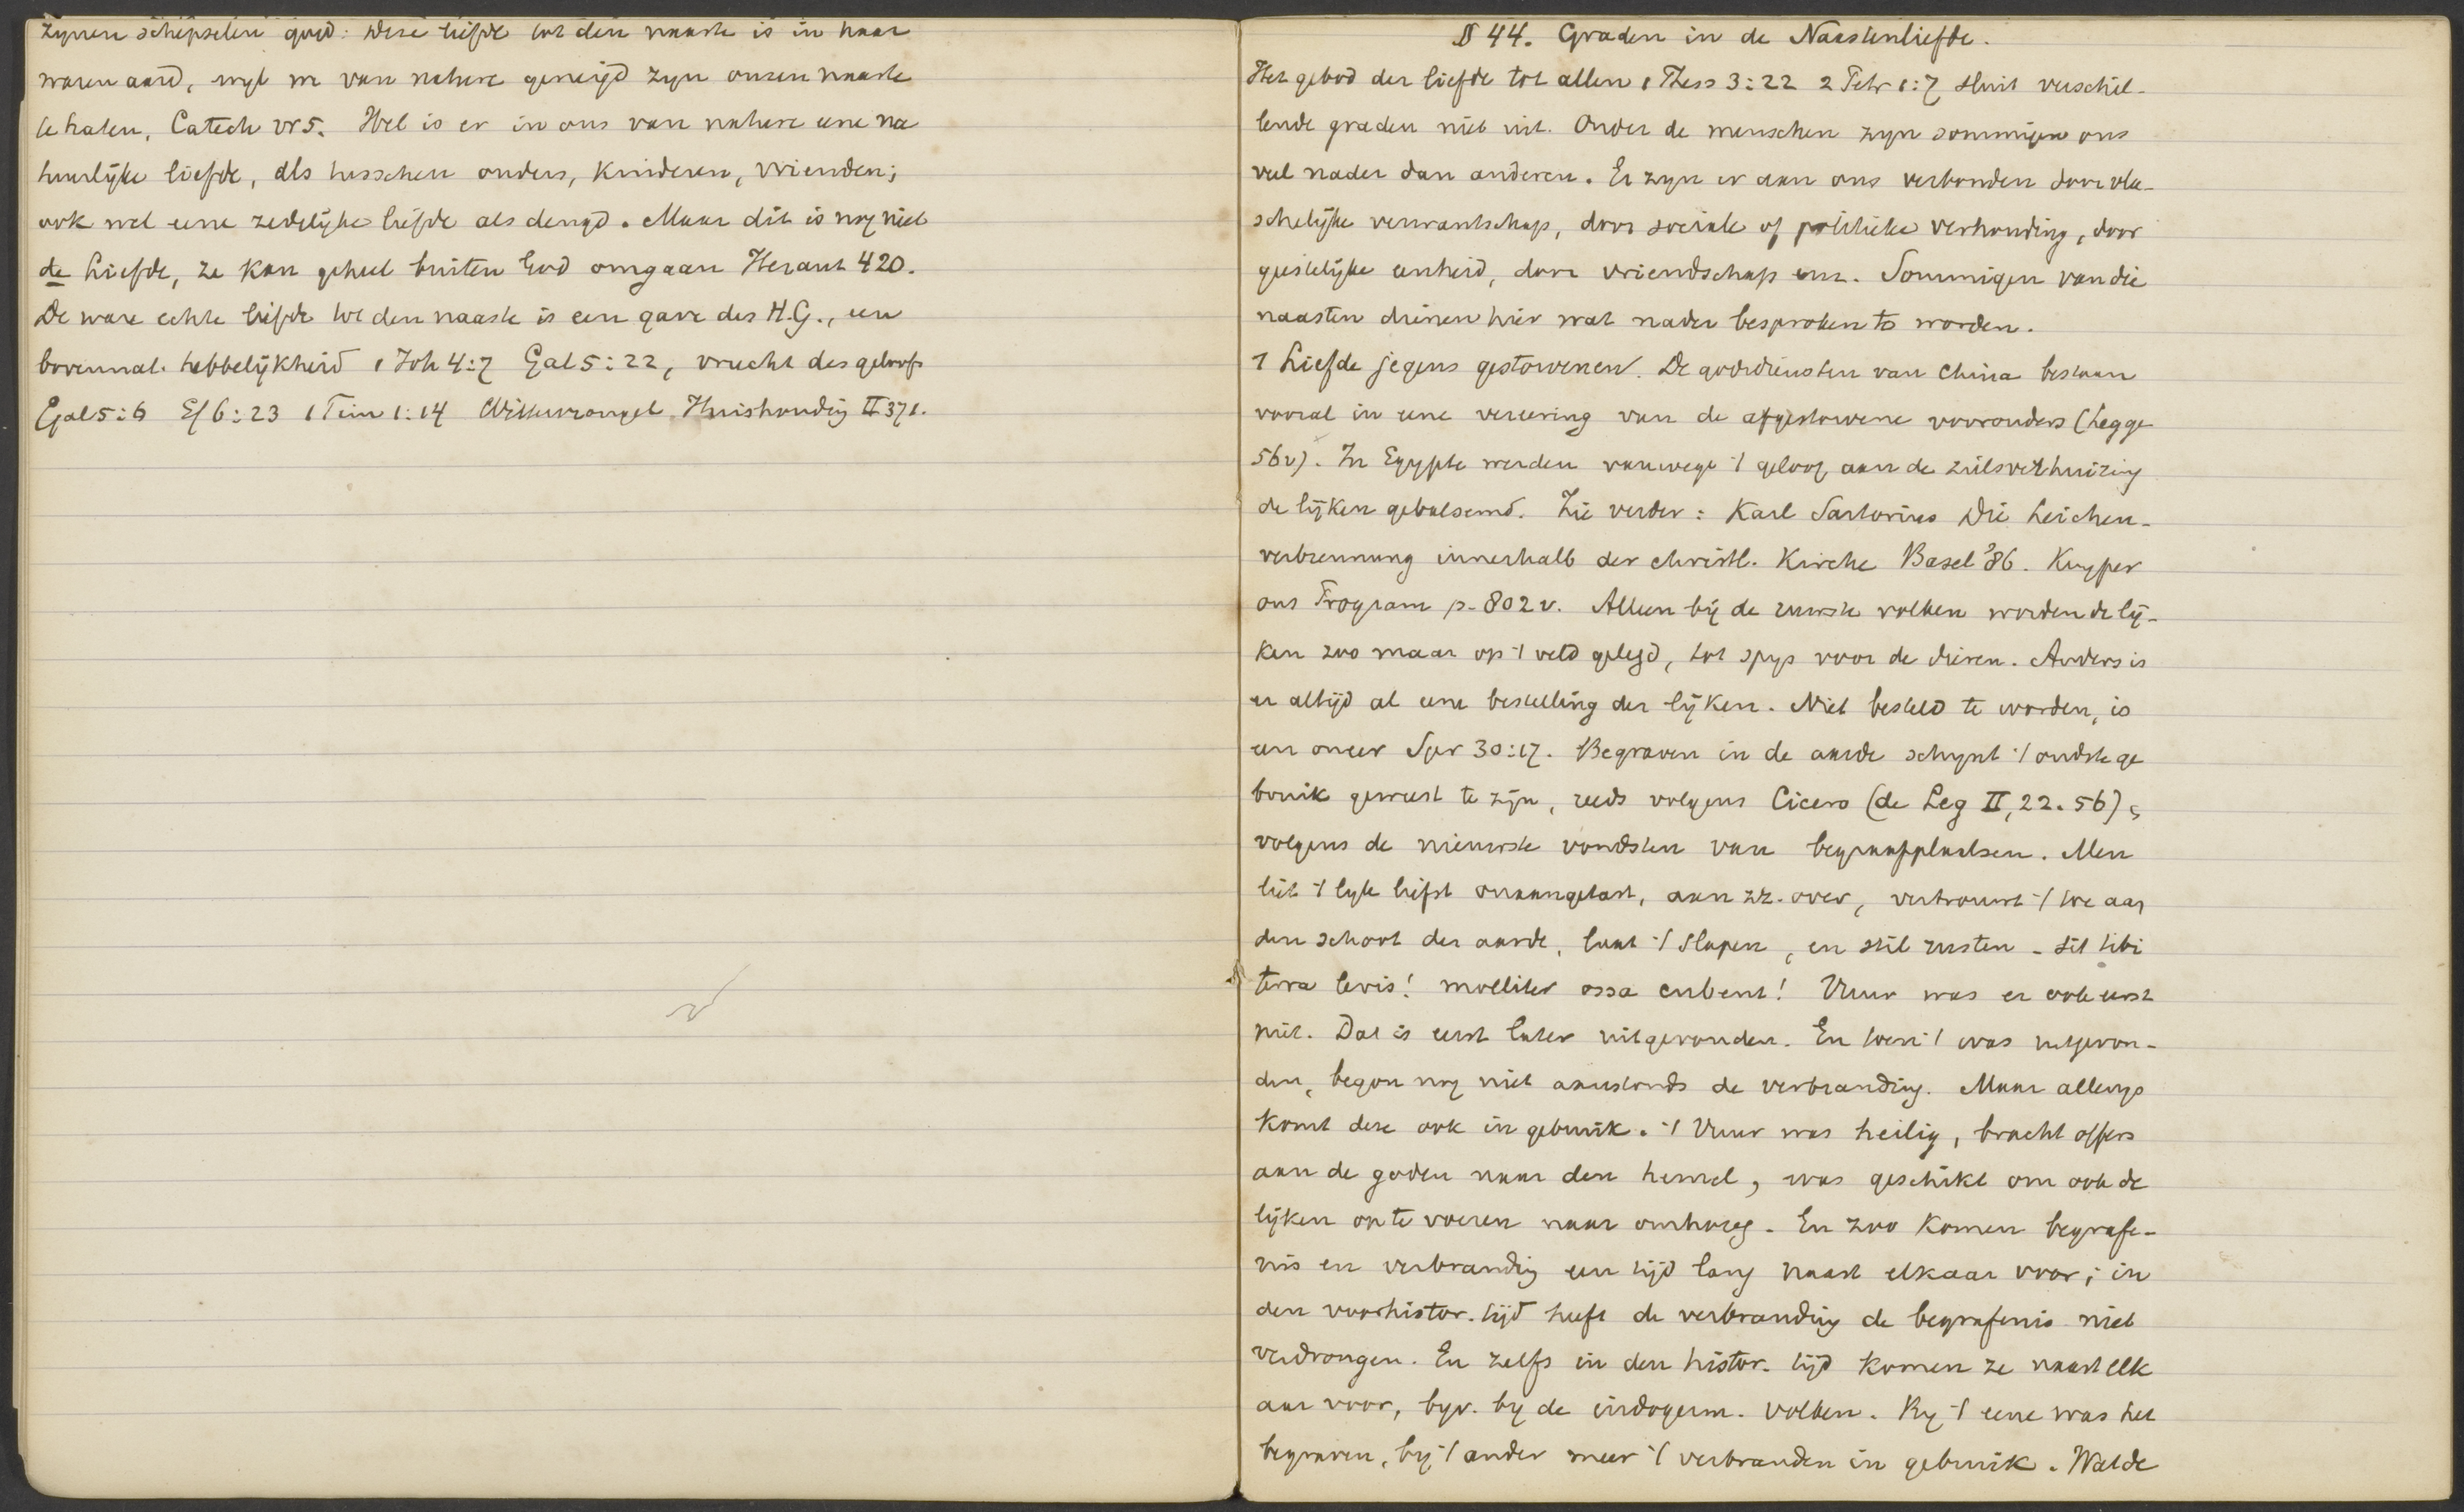 zynen schepselen goed: deze liefde tot den naaste is in haar
waren aard, wyl we van nature geneigd zyn onzen naaste
te haten, Catech vr 5. Wel is er in ons van nature eene na
tuurlyke liefde, als tusschen ouders, kinderen, vrienden;
ook wel eene zedelyke liefde als deugd. Maar dit is nog niet
de Liefde, ze kan geheel buiten God omgaan Heraut 420.
De ware echte liefde tot den naaste is een gave des H.G., een
bovennat. hebbelijkheid 1 Joh 4:7 Gal 5:22, vrucht des geloofs
Gal 5:6 Ef 6:23 1 Tim 1:14 Wittewrongel Huishouding II 371.
§ 44. Graden in de Naastenliefde.
Het gebod der liefde tot allen 1 Thess 3:22 2 Petr 1:7 sluit verschil-
lende graden niet uit. Onder de menschen zyn sommigen ons
veel nader dan anderen. Er zyn er aan ons verbonden door vlee-
schelijke verwantschap, door sociale of politieke verhouding, door
geestelijke eenheid, door vriendschap enz. Sommigen van die
naasten dienen hier wat nader besproken te worden.
1 Liefde jegens gestorvenen. De godsdiensten van China bestaan
vooral in eene vereering van de afgestorvene voorouders (Legge
56v). In Egypte werden vanwege 't geloof aan de zielsverhuizing
de lijken gebalsemd. Zie verder: Karl Sartorius Die Leichen-
verbrennung innerhalb der christl. Kirche Basel '86. Kuyper
ons Program p. 802 v. Alleen bij de ruwste volken worden de lij-
ken zoo maar op 't veld gelegd, tot spys voor de dieren. Anders is
er altijd al eene bestelling der lijken. Niet besteld te worden, is
een oneer Spr 30:17. Begraven in de aarde schynt 't oudste ge
bruik geweest te zijn, reeds volgens Cicero (de Leg II, 22. 56),
volgens de nieuwste vondsten van begraafplaatsen. Men
liet 't lyk liefst onaangetast, aan zz. over, vertrouwt 't toe aan
den schoot der aarde, laat 't slapen, en stil rusten - sit tibi
terra levis! molliter ossa cubent! Vuur was er ook eerst
niet. Dat is eerst later uitgevonden. En toen 't was uitgevon-
den, begon nog niet aanstonds de verbranding. Maar allengs
komt deze ook in gebruik. 't Vuur was heilig, bracht offers
aan de goden naar den hemel, was geschikt om ook de
lijken op te voeren naar omhoog. En zoo komen begrafe-
nis en verbranding een tijd lang naast elkaar voor; in
den voorhistor. tijd heeft de verbranding de begrafenis niet
verdrongen. En zelfs in den histor. tijd komen ze naast elk
aar voor, byv. by de indogerm. volken. By 't eene was het
begraven, bij 't ander meer 't verbranden in gebruik. Walde